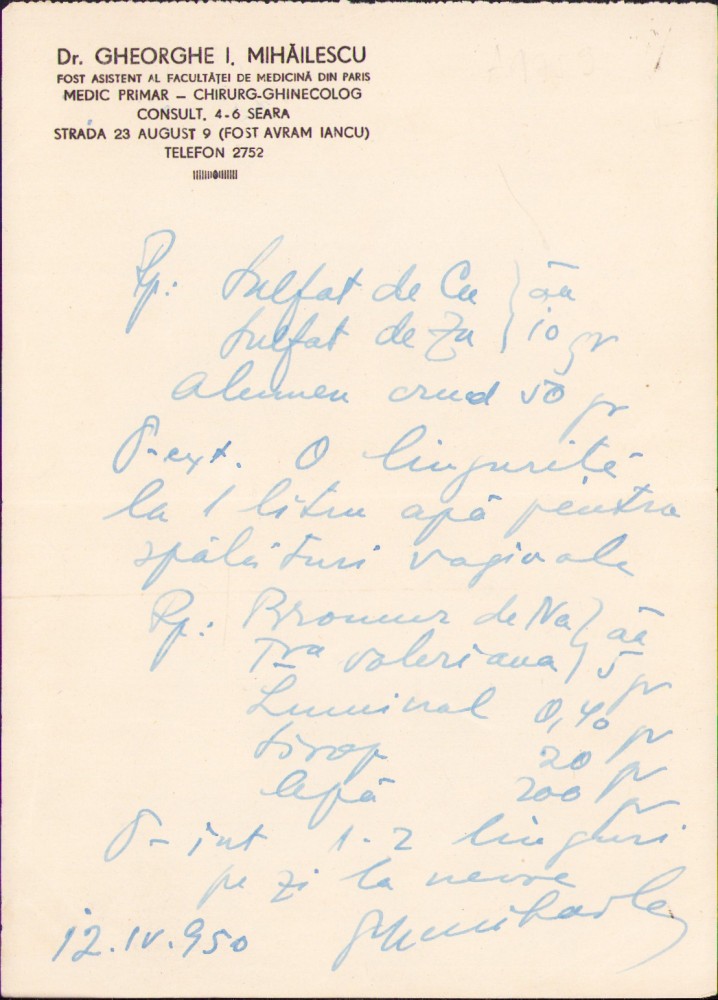 Dr. GHEORGHE I. MIHĂILESCU
FOST ASISTENT AL FACULTĂȚEI DE MEDICINĂ DIN PARIS
MEDIC PRIMAR – CHIRURG-GHINECOLOG
CONSULT. 4-6 SEARA
STRADA 23 AUGUST 9 (FOST AVRAM IANCU)
TELEFON 2752
Rp: Sulfat de Cu } āa
Sulfat de Zn } 10 gr
Alumen crud 50 gr
D-ext. O linguriță
la 1 litru apă pentru
spălături vaginale
Rp: Bromur de Na } āa
Tra valeriana } 5 gr
Luminal 0,40 gr
Sirop 20 gr
Apă 200 gr
D-int 1-2 linguri
pe zi la nevoe
12.IV.950